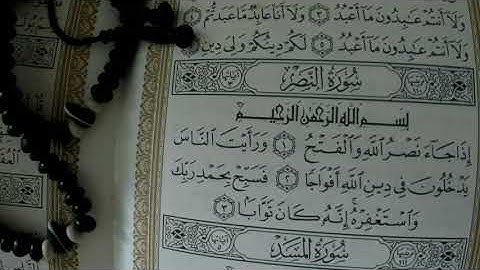 وَلَآ أَنتُمْ عَـٰبِدُونَ مَآ أَعْبُدُ ۝٣ وَلَآ أَنَا۠ عَابِدٌ مَّا عَبَدتُّمْ ۝٤
وَلَآ أَنتُمْ عَـٰبِدُونَ مَآ أَعْبُدُ ۝٥ لَكُمْ دِينُكُمْ وَلِىَ دِينِ ۝٦
سُورَةُ النَّصْرِ
بِسْمِ ٱللَّهِ ٱلرَّحْمَـٰنِ ٱلرَّحِيمِ
إِذَا جَآءَ نَصْرُ ٱللَّهِ وَٱلْفَتْحُ ۝١ وَرَأَيْتَ ٱلنَّاسَ
يَدْخُلُونَ فِى دِينِ ٱللَّهِ أَفْوَاجًا ۝٢ فَسَبِّحْ بِحَمْدِ رَبِّكَ
وَٱسْتَغْفِرْهُ ۚ إِنَّهُۥ كَانَ تَوَّابًۢا ۝٣
سُورَةُ المَسَدِ